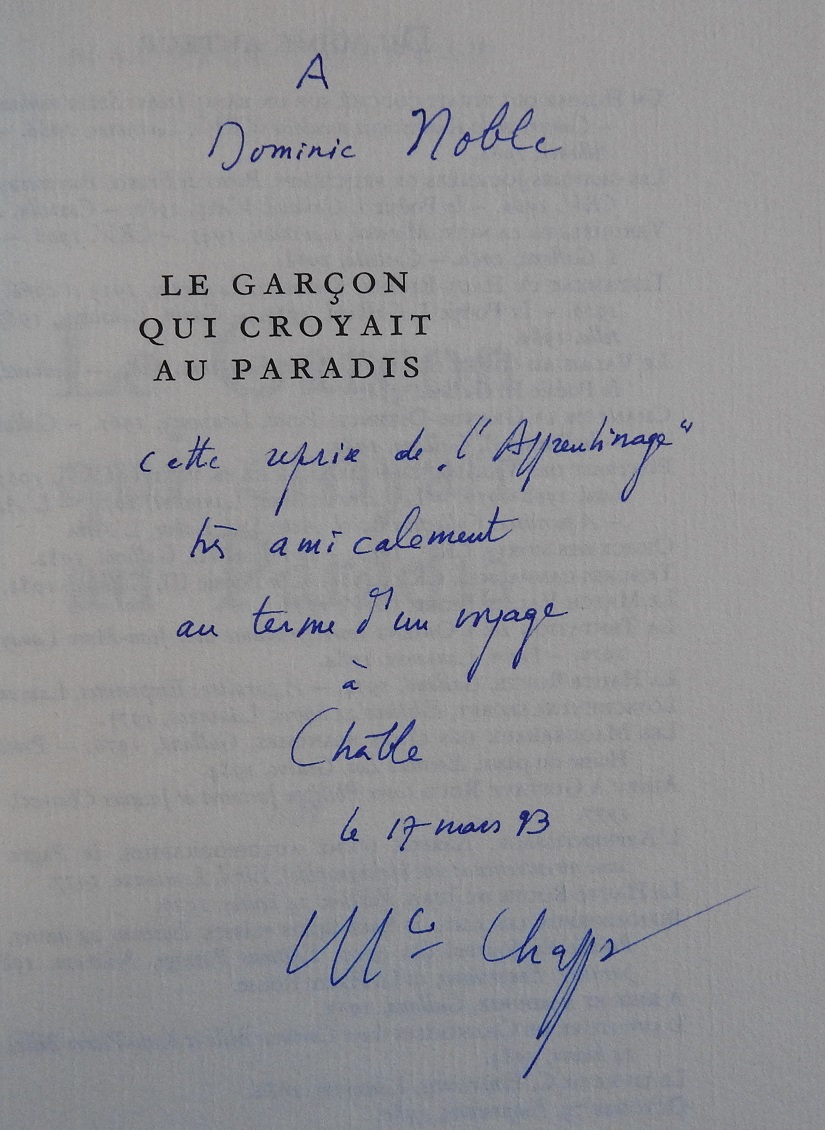 A
Dominic Noble
LE GARÇON
QUI CROYAIT
AU PARADIS
cette reprise de „l'Apprentissage"
très amicalement
au terme d'un voyage
à
Châble
le 17 mars 93
Mce Chappaz